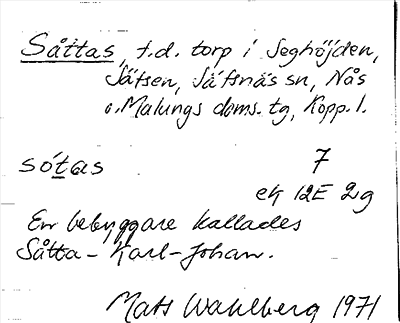 Såttas, f.d. torp i Seghöjden,
Säfsen, Säfsnäs sn, Nås
o. Malungs doms. tg, Kopp. l.
sótas 7
ek 12E 2g
En bebyggare kallades
Såtta-Karl-Johan.
Mats Wahlberg 1971